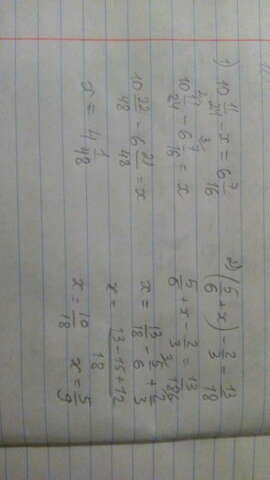 1) 10 11/24 - x = 6 7/16
10 11/24 - 6 7/16 = x
10 22/48 - 6 21/48 = x
x = 4 1/48
2) (5/6 + x) - 2/3 = 13/18
5/6 + x - 2/3 = 13/18
x = 13/18 - 5/6 + 2/3
x = (13 - 15 + 12)/18
x = 10/18 x = 5/9